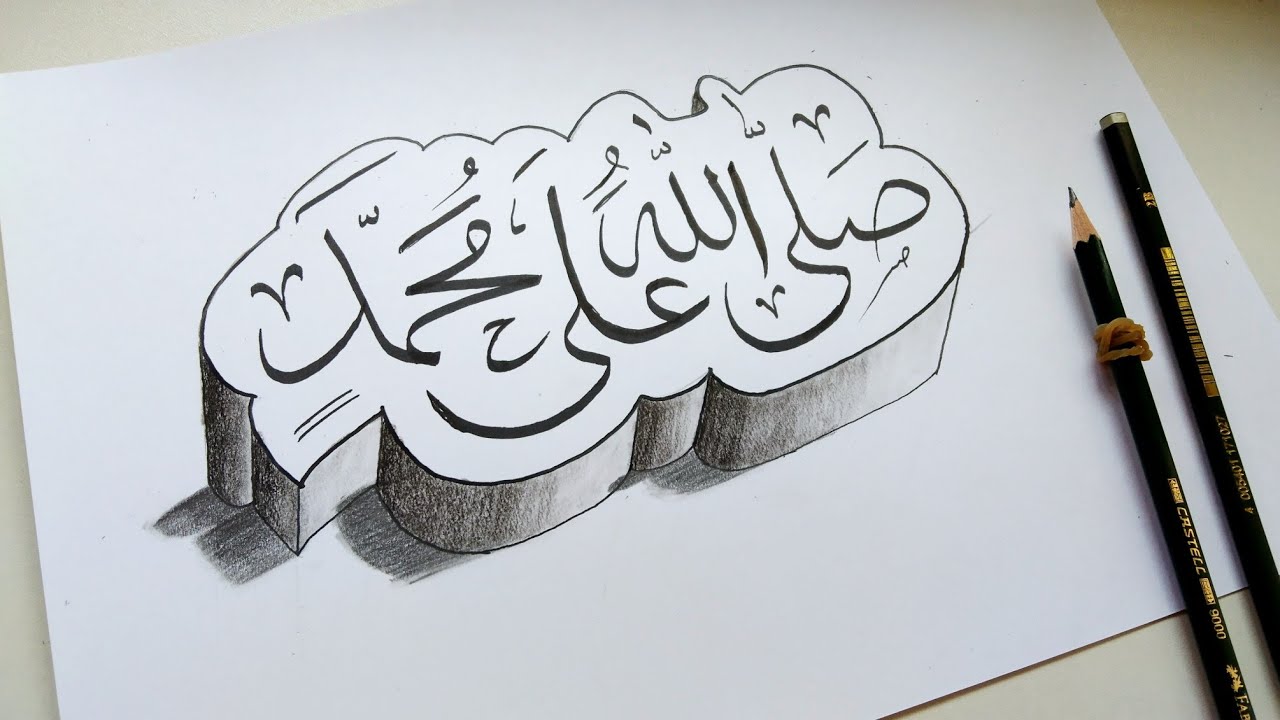 صَلَّى اللّٰهُ عَلَى مُحَمَّدٍ
CASTELL 9000